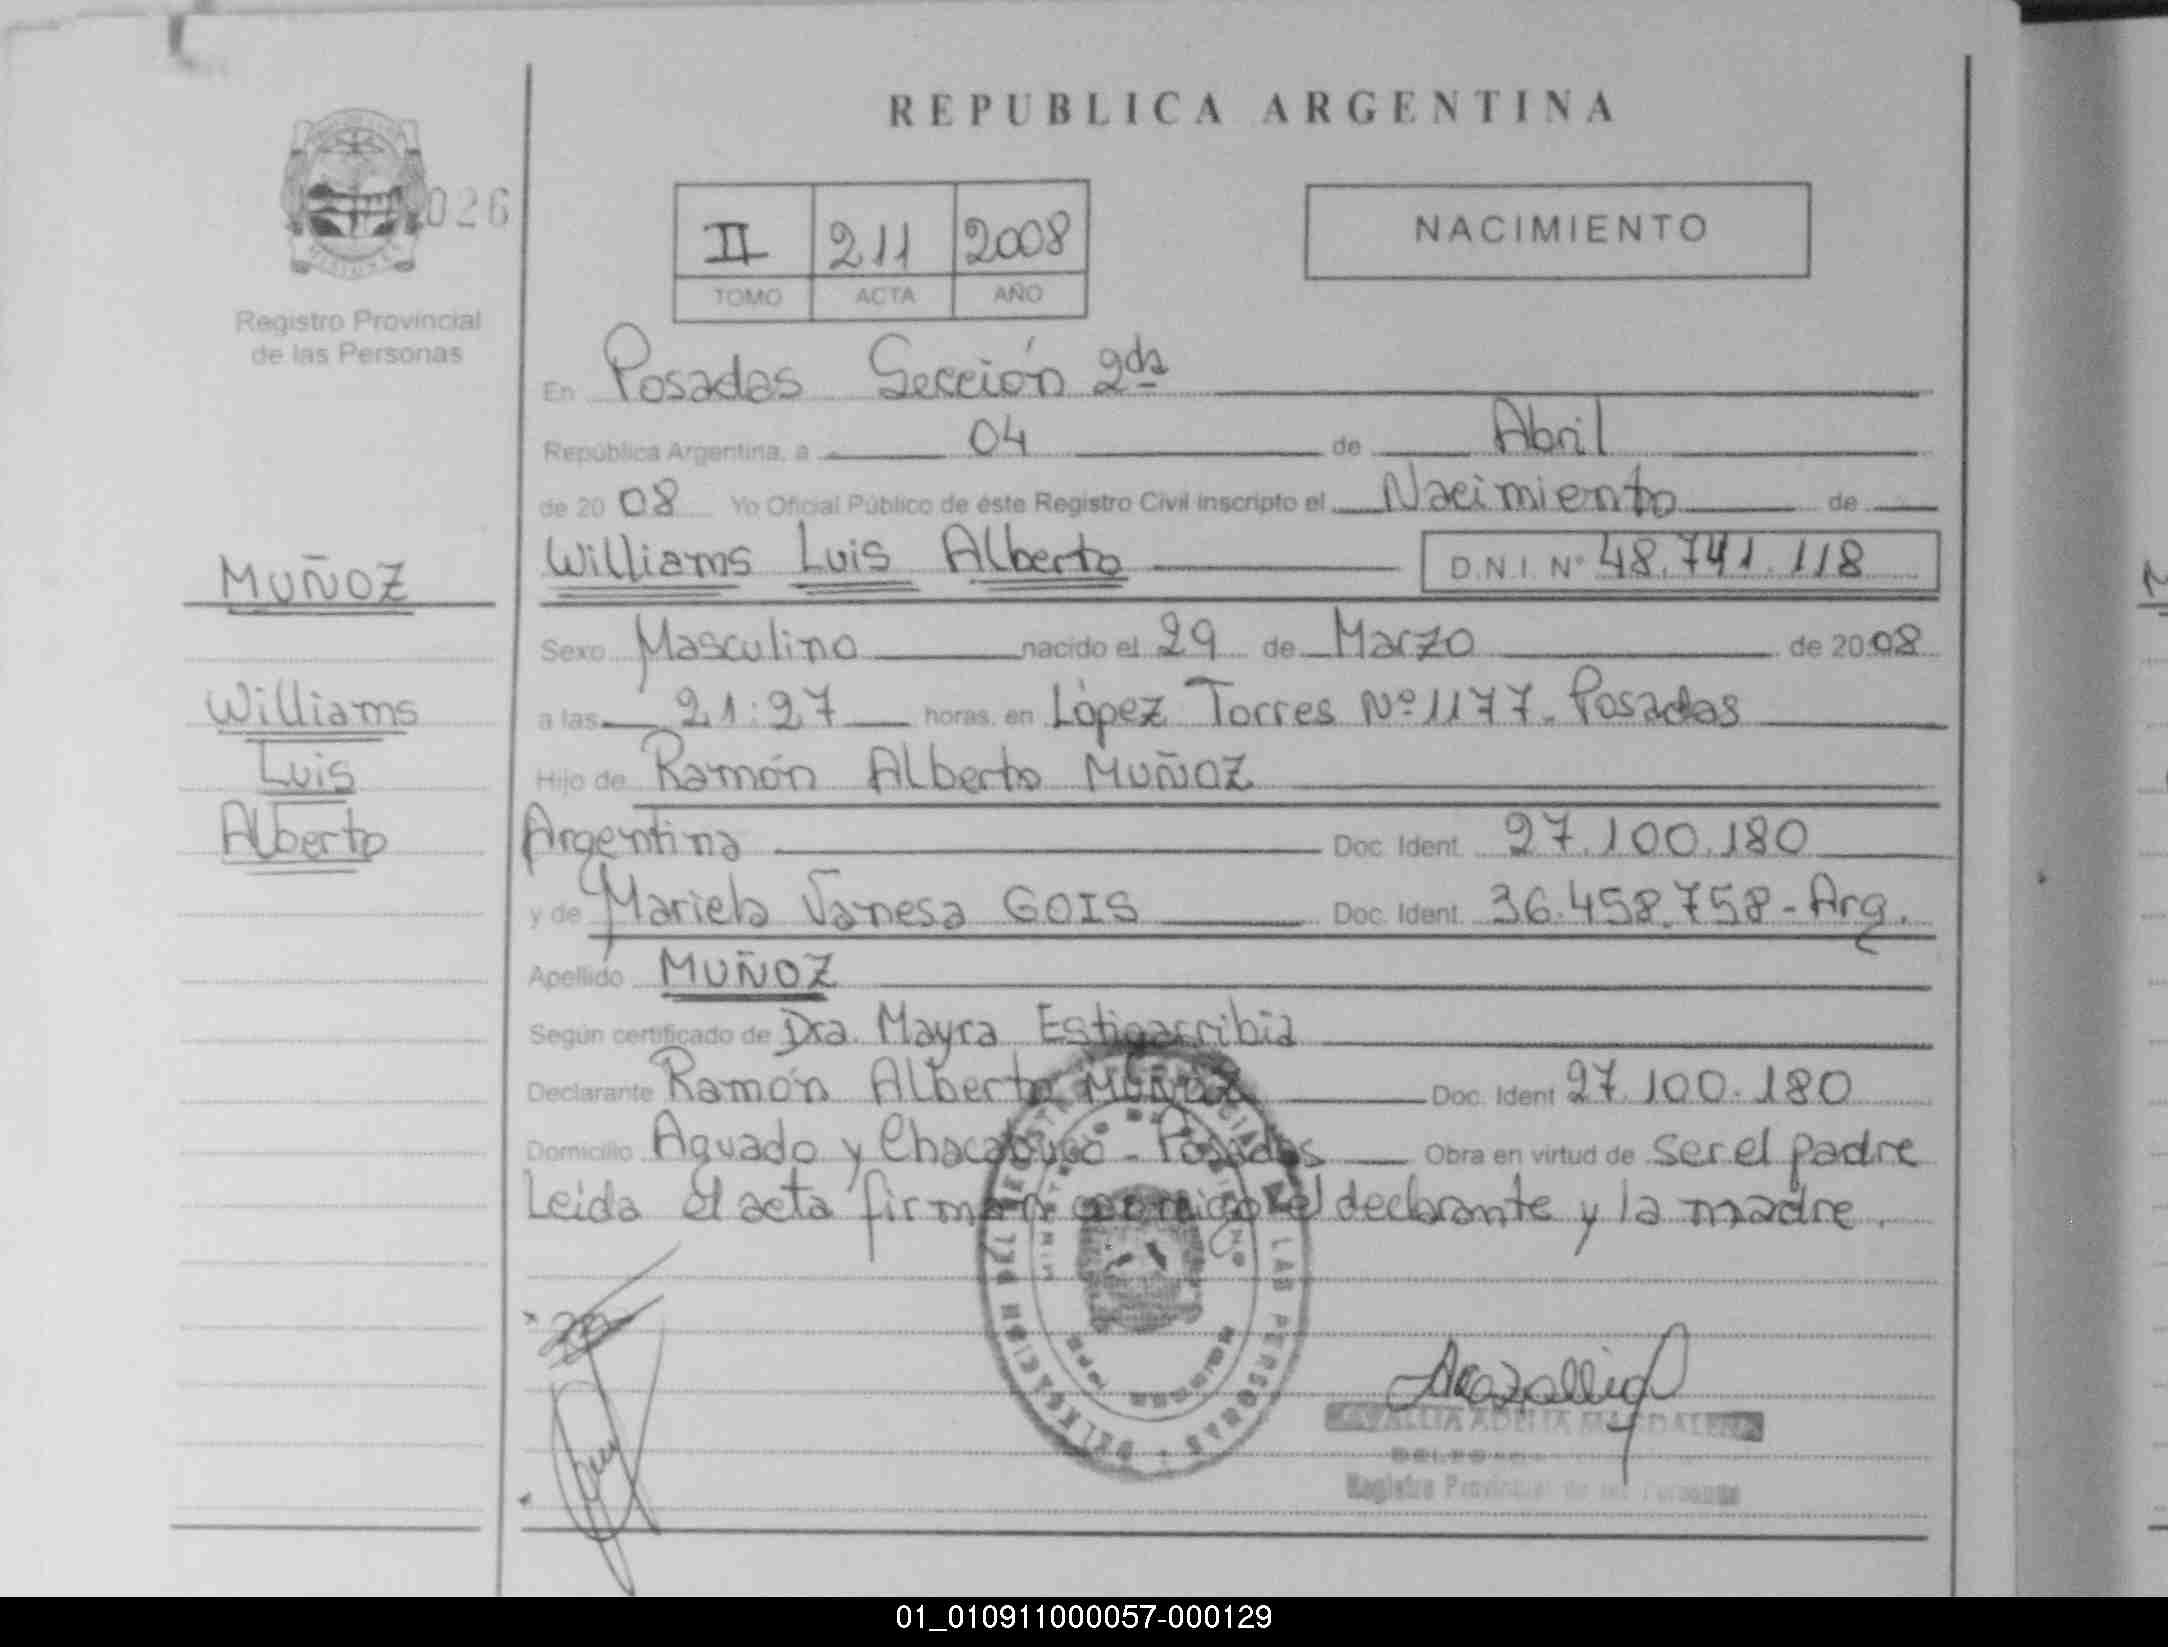 REPUBLICA ARGENTINA
026
II 211 2008
TOMO ACTA AÑO
NACIMIENTO
Registro Provincial
de las Personas
En Posadas Sección 2da
República Argentina, a 04 de Abril
de 2008 Yo Oficial Público de éste Registro Civil inscripto el Nacimiento de
MUÑOZ
Williams Luis Alberto D.N.I. Nº 48.741.118
Sexo Masculino nacido el 29 de Marzo de 2008
Williams
a las 21:27 horas. en López Torres Nº 1177. Posadas
Luis
Hijo de Ramón Alberto MUÑOZ
Alberto
Argentina Doc. Ident. 27.100.180
y de Mariela Vanesa GOIS Doc. Ident. 36.458.758 - Arg.
Apellido MUÑOZ
Según certificado de Dra. Mayra Estigarribia
Declarante Ramón Alberto MUÑOZ Doc. Ident 27.100.180
Domicilio Aguado y Chacabuco - Posadas Obra en virtud de ser el padre
Leida el acta firman conmigo el declarante y la madre.
ADELIA MAGDALENA
Registro Provincial de las Personas
01_010911000057-000129